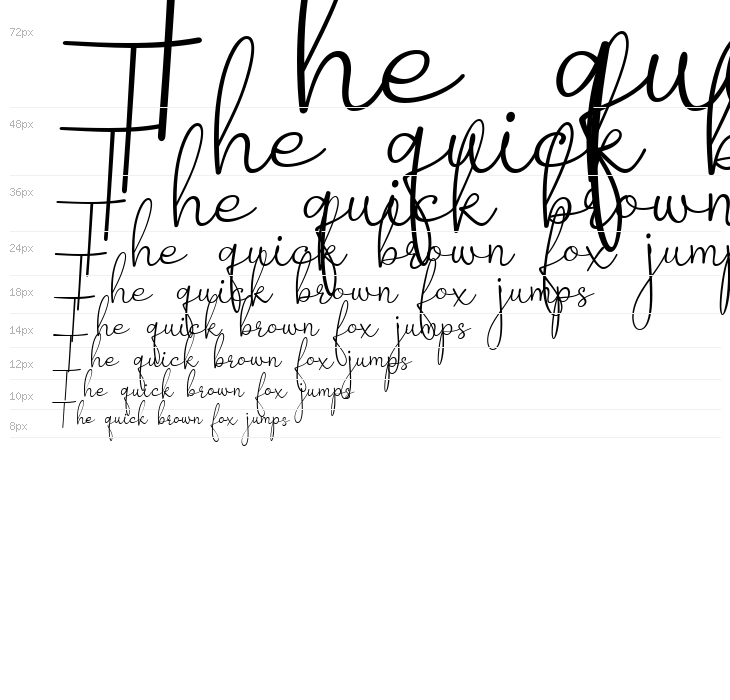 72px The qui
48px The quick b
36px The quick brown
24px The quick brown fox jump
18px The quick brown fox jumps
14px The quick brown fox jumps
12px The quick brown fox jumps
10px The quick brown fox jumps
8px The quick brown fox jumps